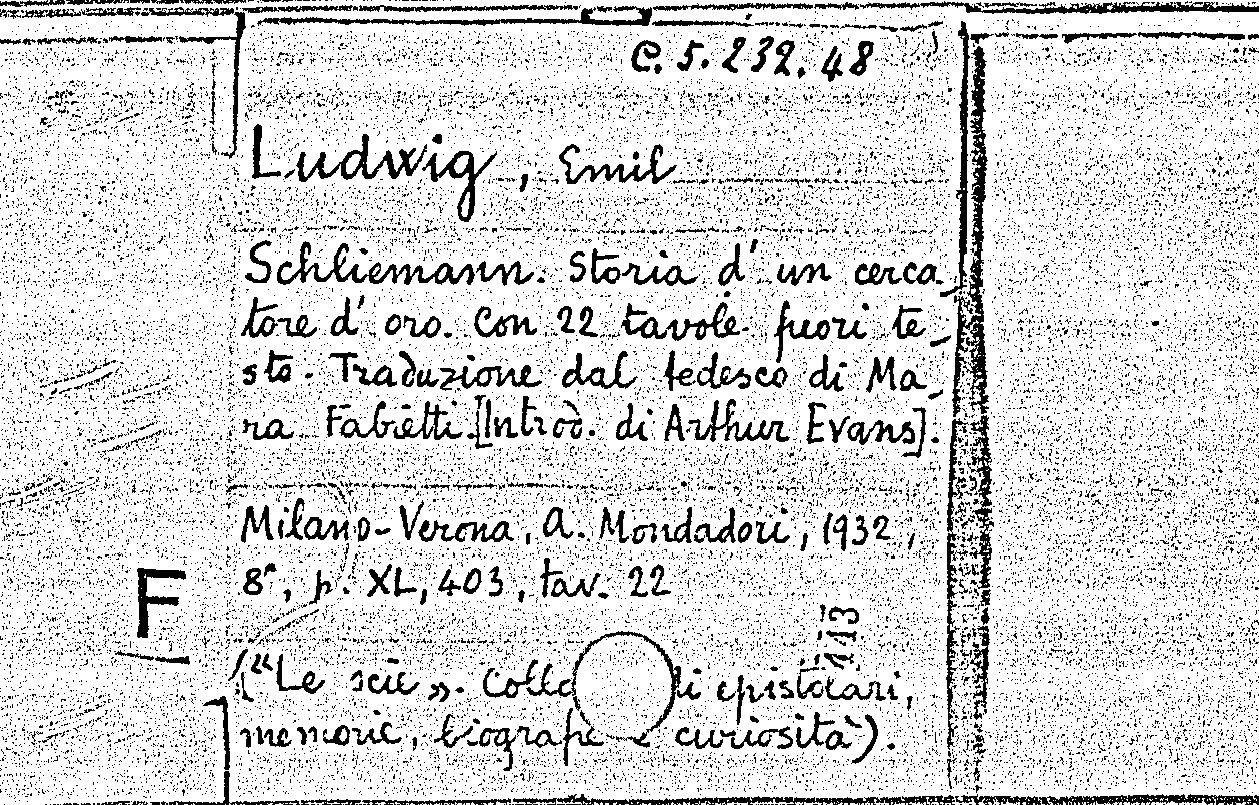 C. 5. 232. 48
Ludwig, Emil
Schliemann. Storia d' un cerca_
tore d' oro. Con 22 tavole fuori te_
sto. Traduzione dal tedesco di Ma_
ra Fabietti. [Introd. di Arthur Evans].
Milano-Verona, A. Mondadori, 1932,
8°, p. XL, 403, tav. 22
F
113
("Le scie». Colle di epistolari,
memorie, biografie e curiosità).